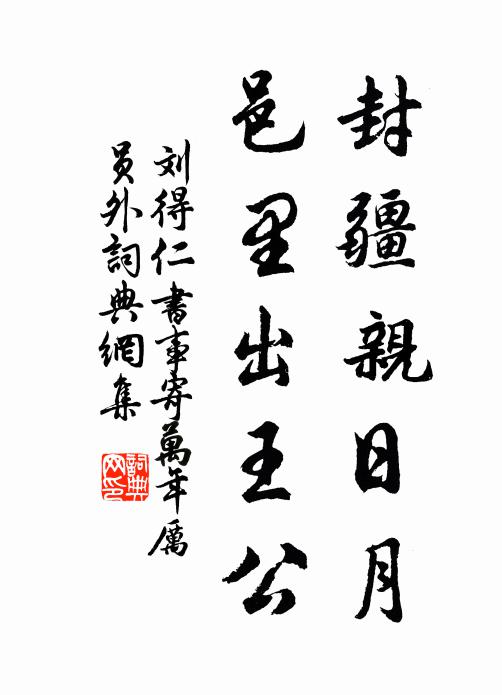 封疆親日月
邑里出王公
刘得仁書事寄萬年厲
員外詞典網集
詞典网印